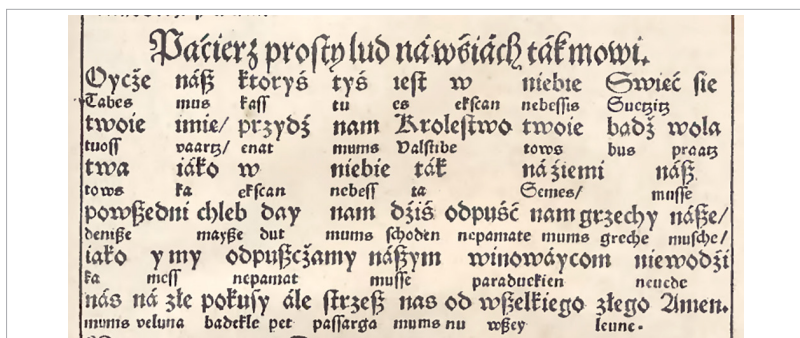 Páćierz prosty lud ná wśiách ták mowi.
Oycże náß ktoryś tyś iest w niebie Swieć sie
Tabes mus kass tu es ekscan nebessis Suetzitz
twoie imie/ przydź nam Krolestwo twoie badź wola
tuoss vaartz/ enat mums Valstibe tows bus praatz
twa iáko w niebie ták ná źiemi náß
tows ka ekscan nebess ta Semes/ musse
powßedni chleb day nam dźiś odpuść nam grzechy náße/
deniße mayße dut mums schoden nepamate mums greche musche/
iako y my odpußcżamy náßym winowáycom niewodźi
ka mess nepamat musse paraduckien neuede
nás ná złe pokusy ále strzeß nas od wßelkiego złego Amen.
mums veluna badekle pet passarga mums nu wßey leune.